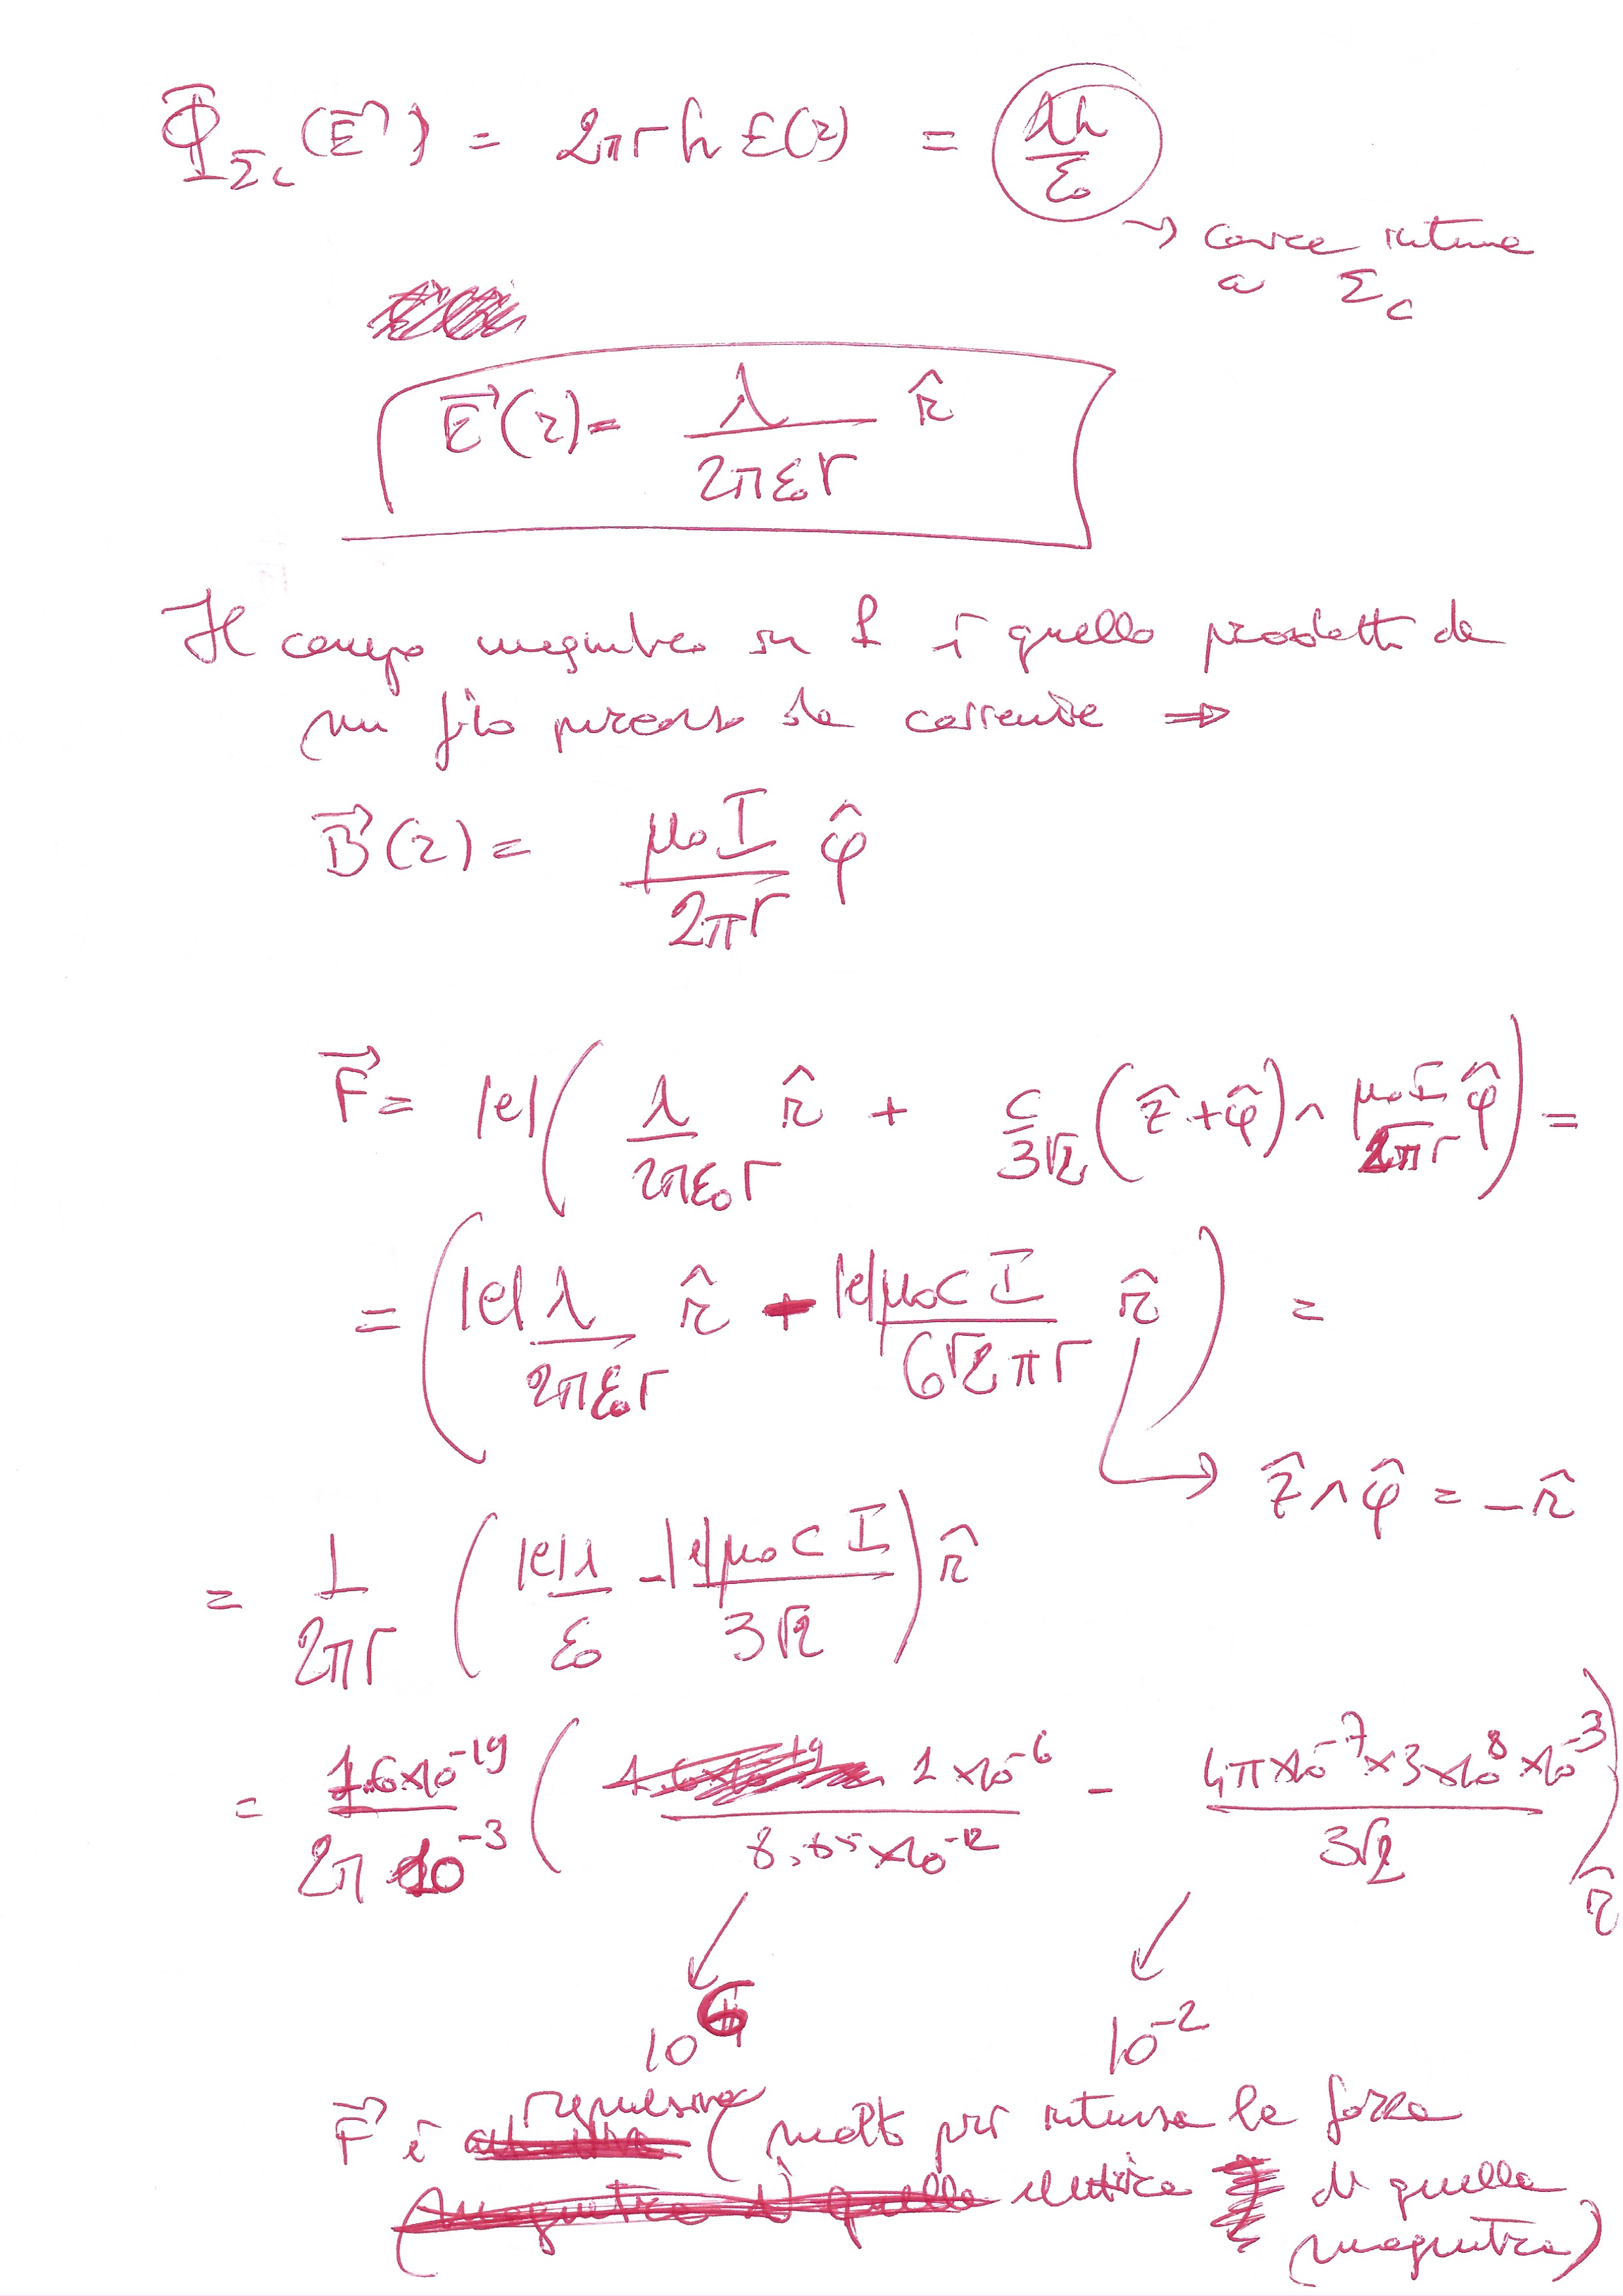 Φ_Σc (E⃗) = 2πrh E(r) = λh/ε₀
→ carica interna
a Σc
E⃗(r) = λ/(2πε₀r) r̂
Il campo magnetico su P è quello prodotto da
un filo percorso da corrente ⇒
B⃗(r) = μ₀I/(2πr) φ̂
F⃗ = |e| ( λ/(2πε₀r) r̂ + c/(3√2) (ẑ + φ̂) ∧ μ₀I/(2πr) φ̂ ) =
= ( |e|λ/(2πε₀r) r̂ - |e|μ₀cI/(6√2πr) r̂ ) =
→ ẑ ∧ φ̂ = -r̂
= 1/(2πr) ( |e|λ/ε₀ - |e|μ₀cI/(3√2) ) r̂
= 1.6×10⁻¹⁹/(2π 10⁻³) ( 1×10⁻⁶/(8.85×10⁻¹²) - 4π×10⁻⁷×3×10⁸×10⁻³/(3√2) ) r̂
10⁶ 10⁻²
F⃗ è repulsiva (molto più intensa la forza
elettrica di quella
magnetica)